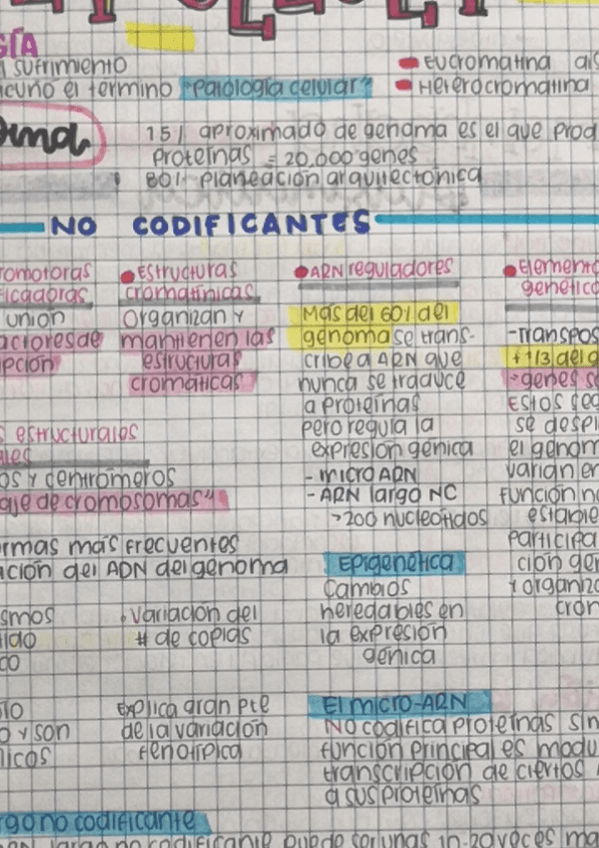 GÍA
sufrimiento
acuñó el termino "Patología celular"
Eucromatina
Heterocromatina
15% aproximado de genoma es el que
Proteínas = 20,000 genes
80% Planeación arquitectónica
NO CODIFICANTES
romotoras
ficadoras
union
actores de
ipción
Estructuras
cromatínicas
Organizan y
mantienen las
estructuras
cromáticas
ARN reguladores
Más del 60% del
genoma se trans-
cribe a ARN que
nunca se traduce
a proteínas
pero regula la
expresión génica
- micro ARN
- ARN largo NC
>200 nucleótidos
Elemento
genético
-Transpos
+1/3 del g
-genes se
Estos seg
se despl
el genom
varian en
función n
estable
Participa
ción gen
y organiz
crom
s estructurales
ales
os y centrómeros
aje de cromosomas"
ormas más frecuentes
ación del ADN del genoma
Epigenética
Cambios
heredables en
la expresión
génica
ismos
ido
do
Variación del
# de copias
o y son
icos
explica gran pte
de la variación
fenotípica
El micro-ARN
No codifica proteínas sin
función principal es modu
transcripción de ciertos
a sus proteínas
rgo no codificante
largo no codificante puede ser unas 10-20 veces